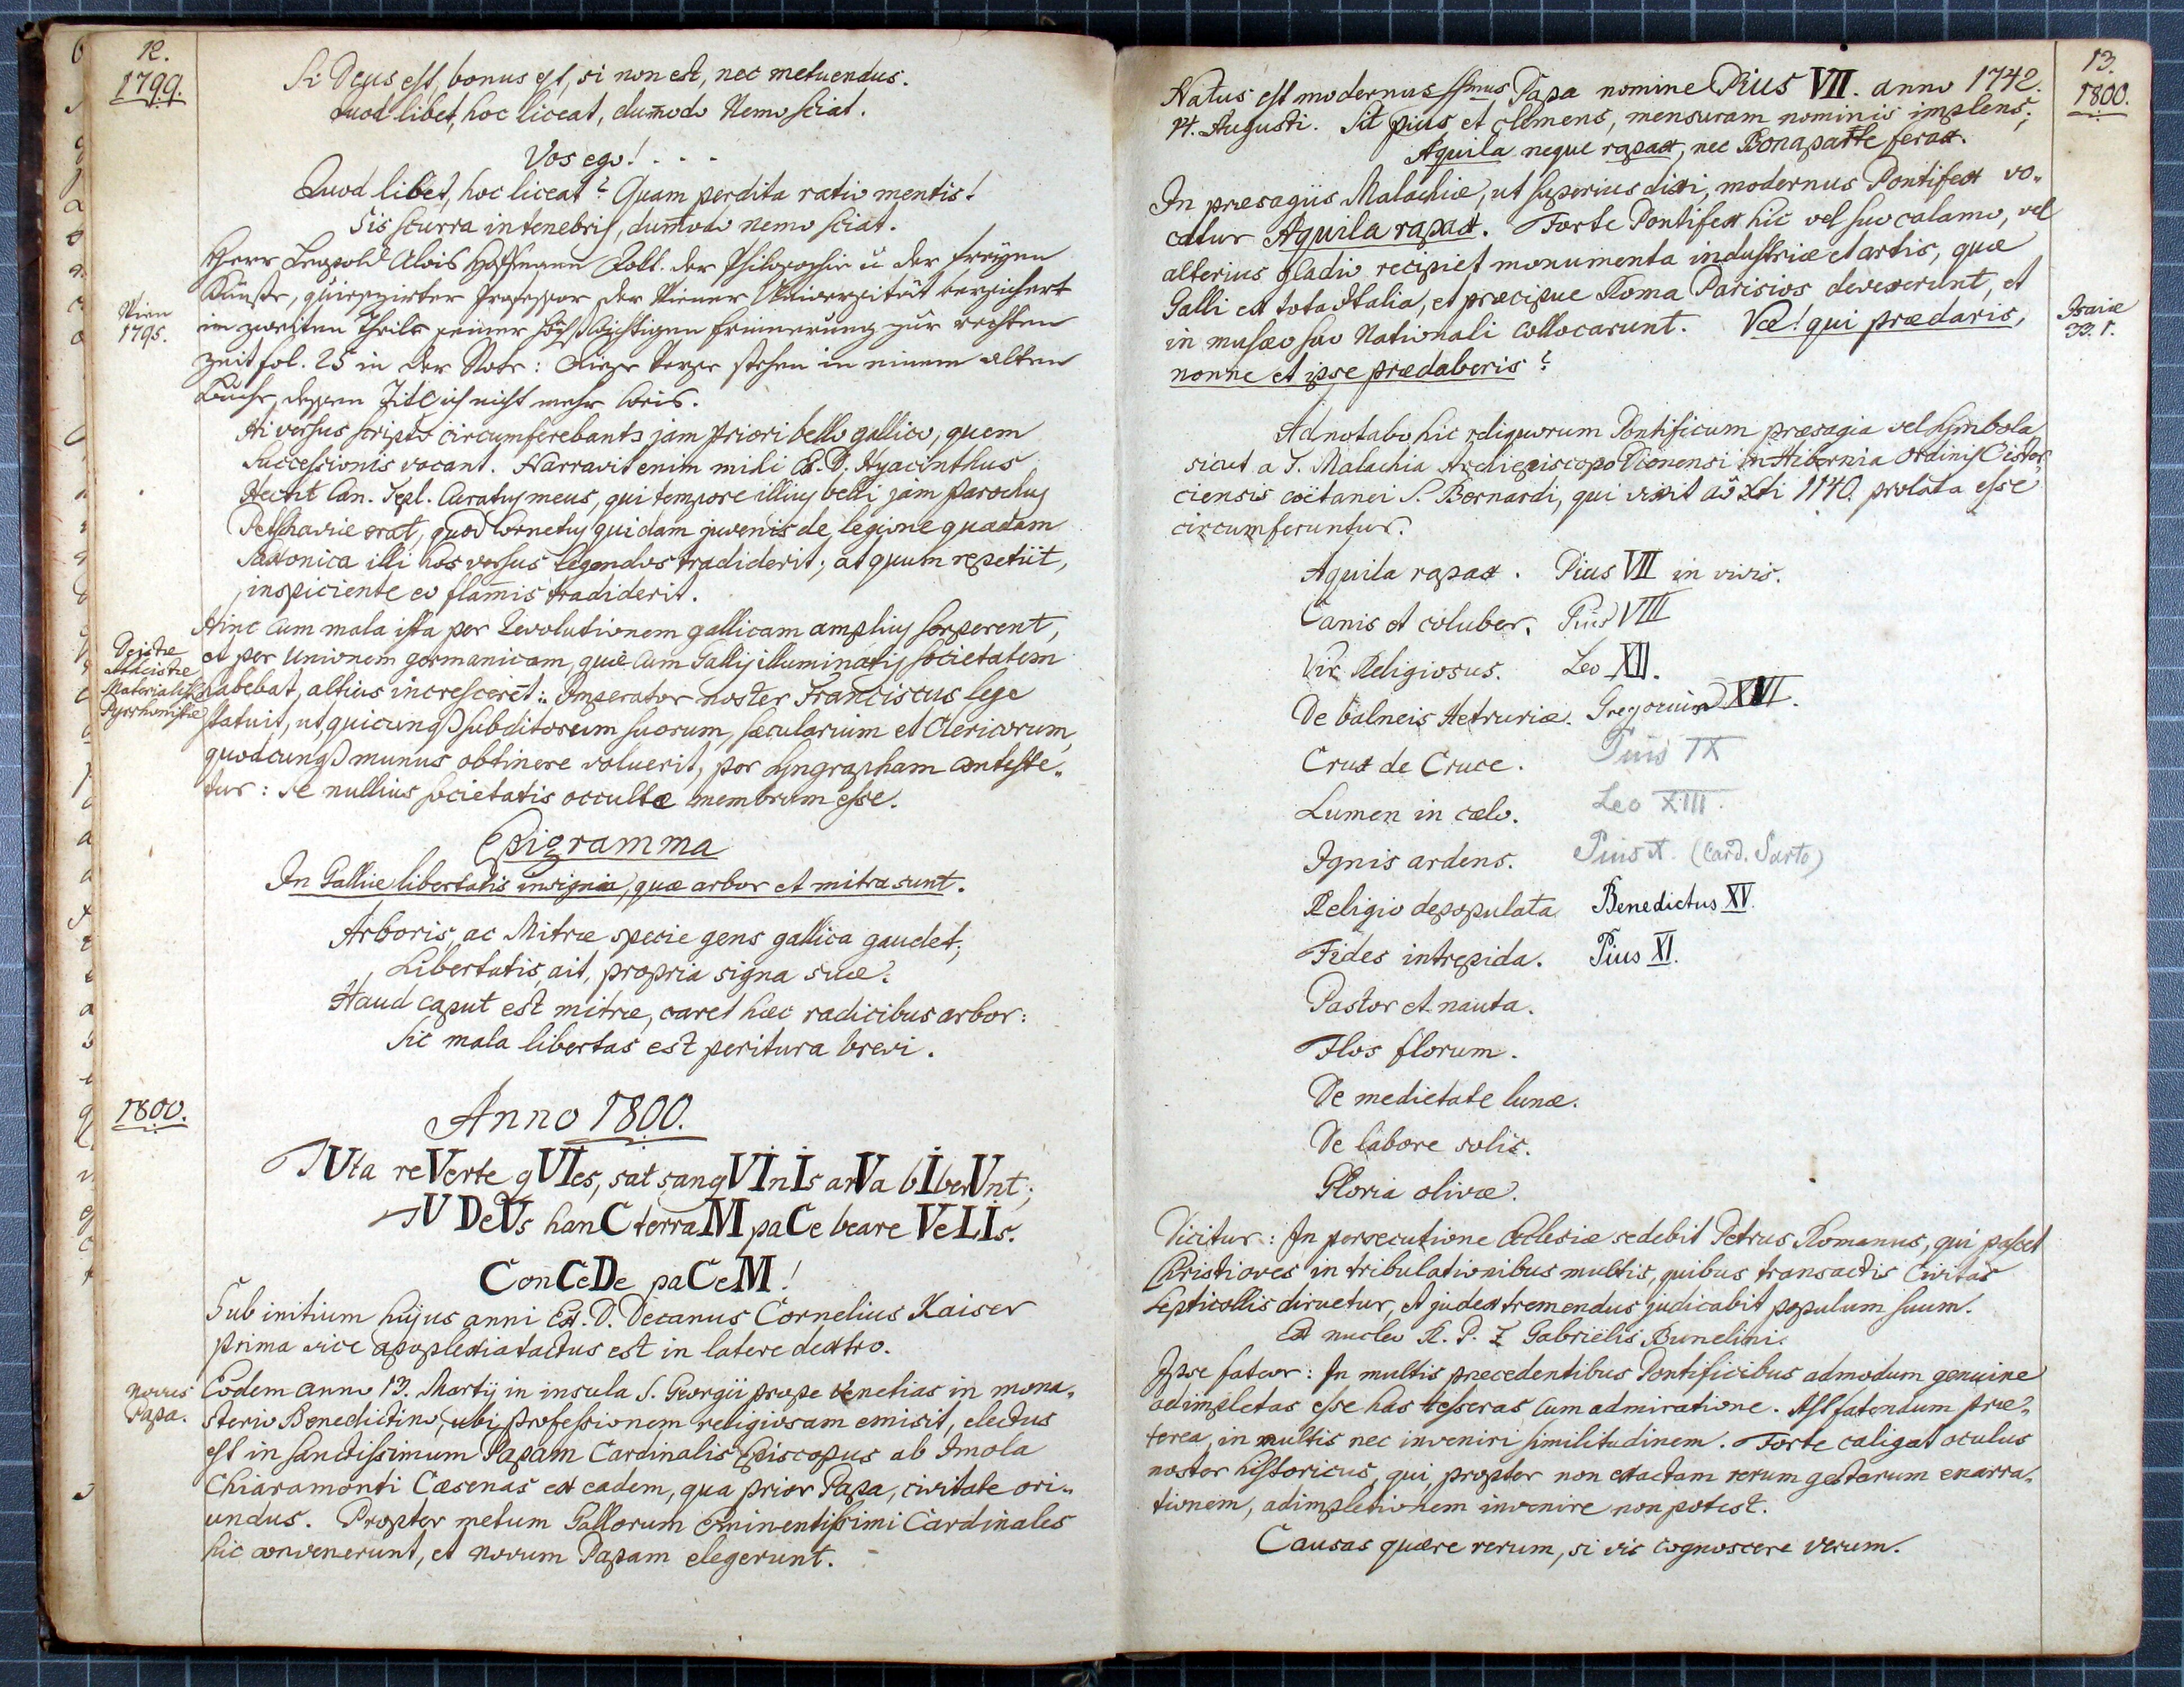 12.
1799.
Si Deus est, bonus est, si non est, nec metuendus.
Quod libet, hoc liceat, dum̄odo Nemo sciat.
Vos ego! . . .
Quod libet, hoc liceat? Quam perdita ratio mentis!
Sis scurra in tenebris, dum̄odo nemo sciat.
Herr Leopold Alois Hoffmann Doct. der Philosophie u der freyen
Künste, quiescirter Professor der Wiener Universität versichert
Wien
1795.
im zweiten Theile seiner höchstwichtigen Erinnerung zur rechten
Zeit fol. 25 in der Note: Diese Verse stehen in einem alten
Buche, dessen Titel ich nicht mehr weis.
Hi versus scripto circumferebantr jam priori bello gallico, quem
Successionis vocant. Narravit enim mihi A. D. Hyacinthus
Hecht Can. Tepl. Curatus meus, qui tempore illius belli jam parochus
Petschaviæ erat, quod Cornetus quidam juvenis de legione quadam
Saxonica illi hos versus legendos tradiderit; at quum repetiit,
inspiciente eo flam̄is tradiderit.
Hinc cum mala ista per Revolutionem gallicam amplius serperent,
Deistæ
Atheistæ
Materialistæ
Pyrrhonistæ
et per Unionem germanicam, quæ cum Gallis illuminatis societatem
habebat, altius incresceret: Imperator noster Franciscus lege
statuit, ut quicunq. subditorum suorum, sæcularium et Clericorum,
quodcunq. munus obtinere voluerit, per Syngrapham conteste-
tur: se nullius societatis occultæ membrum esse.
Epigramma
In Galliæ libertatis insignia, quæ arbor et mitra sunt.
Arboris ac Mitræ specie gens gallica gaudet;
Libertatis, ait, propria signa suæ.
Haud caput est mitræ, caret hæc radicibus arbor:
Sic mala libertas est peritura brevi.
1800.
Anno 1800.
TUta reVerte qUIes, sat sangVInIs arVa bIberUnt;
TU DeUs hanC terraM paCe beare VeLIs.
ConCeDe paCeM!
Sub initium hujus anni Ex. D. Decanus Cornelius Kaiser
prima vice apoplexia tactus est in latere dextro.
Novus
Papa.
Eodem anno 13. Martij in insula S. Georgii prope Venetias in mona-
sterio Benedictino, ubi professionem religiosam emisit, electus
est in sanctissimum Papam Cardinalis Episcopus ab Imola
Chiaramonti Cæsenas ex eadem, qua prior Papa, civitate ori-
undus. Propter metum Gallorum Eminentissimi Cardinales
hic convenerunt, et novum Papam elegerunt.
13.
1800.
Natus est modernus ssmus Papa nomine Pius VII. anno 1742.
14. Augusti. Sit pius et clemens, mensuram nominis implens;
Aquila neque rapax, nec Bonaparte ferox.
In præsagiis Malachiæ, ut superius dixi, modernus Pontifex vo-
catur Aquila rapax. Forte Pontifex hic vel suo calamo, vel
alterius gladio recipiet monumenta industriæ et artis, quæ
Galli ex tota Italia, et præcipue Roma Parisios devexerunt, et
Isaiæ
33. 1.
in musæo suo Nationali collocarunt. Væ! qui prædaris,
nonne et ipse prædaberis?
Adnotabo hic reliquorum Pontificum præsagia vel symbola
sicut a S. Malachia Archiepiscopo Dionensi in Hibernia Ordinis Cister-
ciensis coëtanei S. Bernardi, qui vixit aō Xti 1140. prolata esse
circumferuntur.
Aquila rapax. Pius VII in vivis.
Canis et coluber. Pius VIII
Vir Religiosus. Leo XII.
De balneis Hetruriæ. Gregorius XVI.
Crux de Cruce. Pius IX
Lumen in cælo. Leo XIII.
Ignis ardens. Pius X. (Card. Sarto)
Religio depopulata Benedictus XV.
Fides intrepida. Pius XI.
Pastor et nauta.
Flos florum.
De medietate lunæ.
De labore solis.
Gloria olivæ.
Dicitur: In persecutione Ecclesiæ sedebit Petrus Romanus, qui pascet
Christi oves in tribulationibus multis, quibus transactis Civitas
Septicollis diruetur, et judex tremendus judicabit populum suum.
Ex nucleo R. P. Gabriëlis Bunelini.
Ipse fateor: In multis præcedentibus Pontificibus admodum genuine
adimpletas esse has tesseras cum admiratione. Ast fatendum præ-
terea, in multis nec inveniri similitudinem. Forte caligat oculus
noster historicus, qui propter non exactam rerum gestarum enarra-
tionem, adimpletionem invenire non potest.
Causas quære rerum, si vis cognoscere verum.